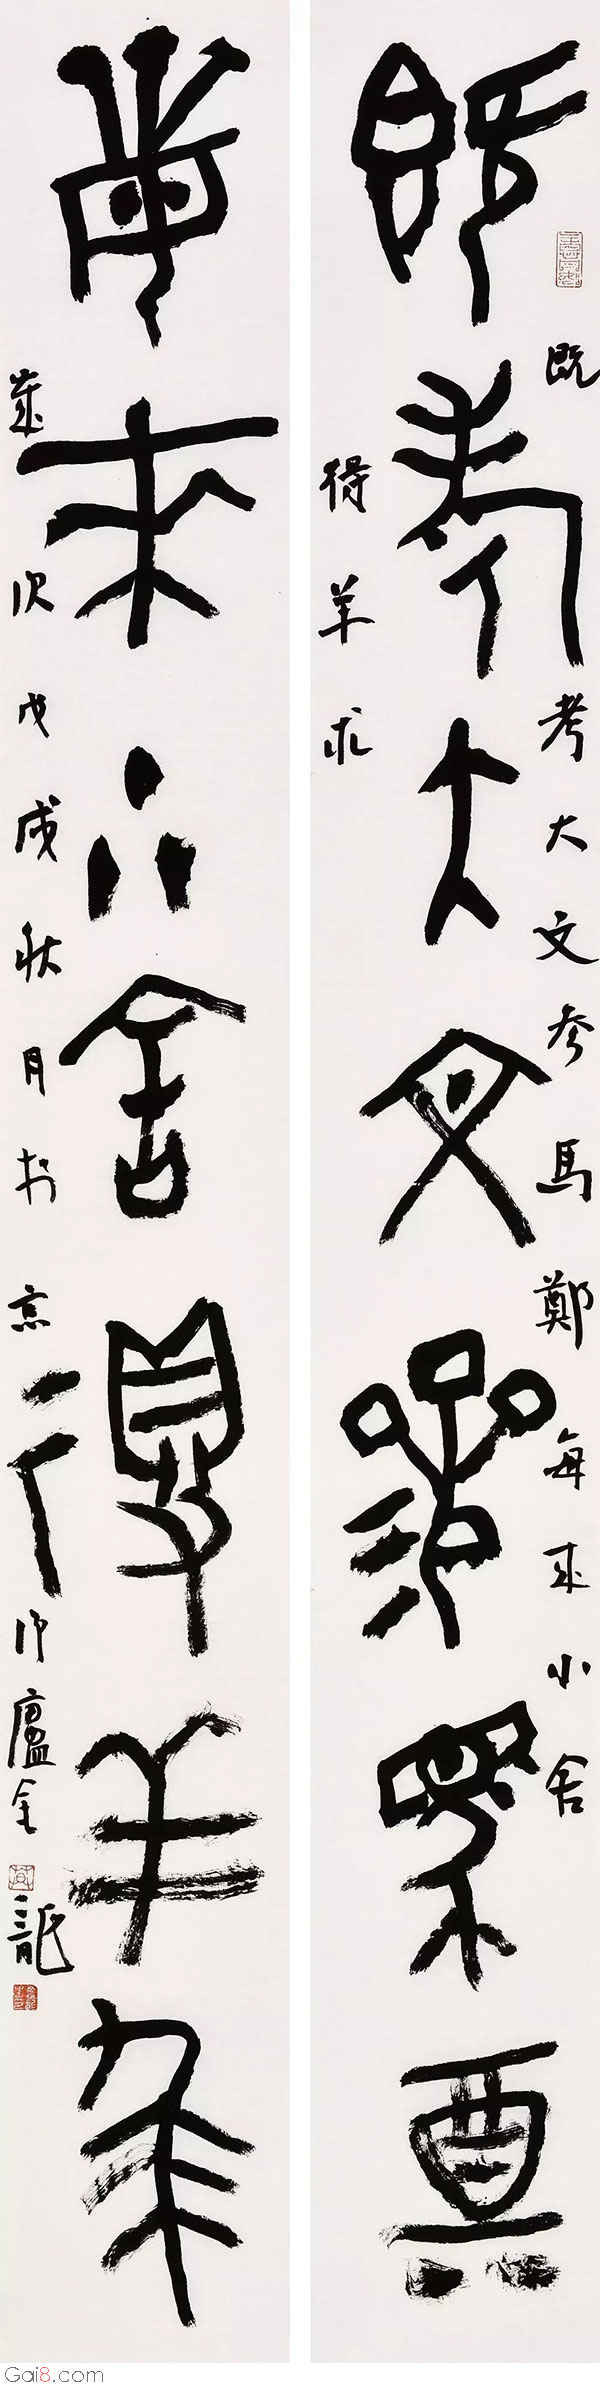 既考大文參馬奠
每來小舍得羊求
既考大文参馬鄭每來小舍
得羊求
歲次戊戌秋月於京
廬金龍
Gai8.com